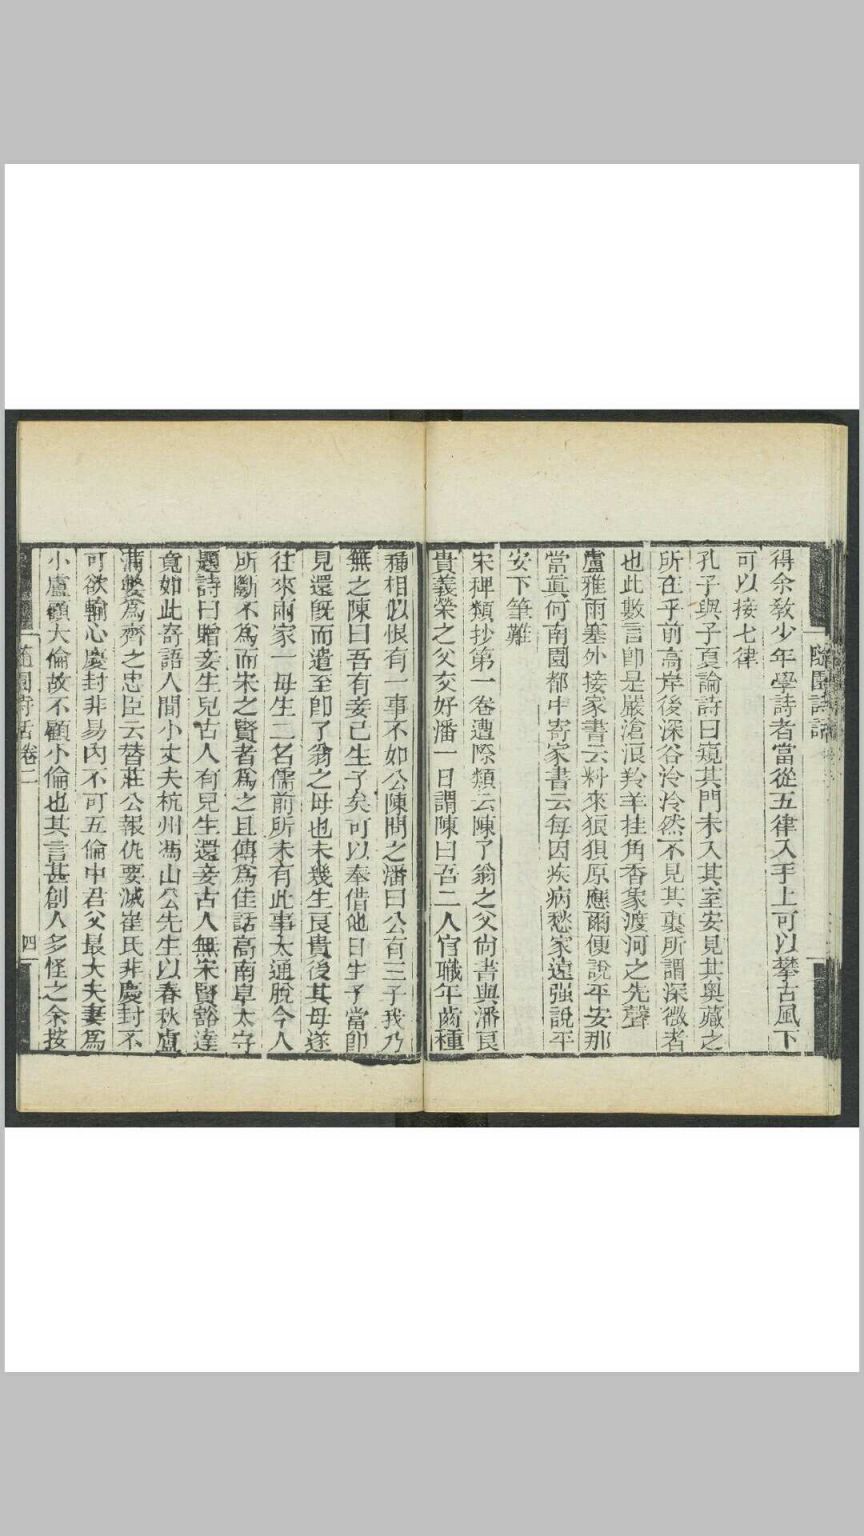 隨園詩話
得余敎少年學詩者當從五律入手上可以攀古風下
可以接七律
孔子與子夏論詩曰窺其門未入其室安見其奧藏之
所在乎前高岸後深谷泠泠然不見其裏所謂深微者
也此數言卽是嚴滄浪羚羊挂角香象渡河之先聲
盧雅雨塞外接家書云料來狼狽原應爾便說平安那
當眞何南園都中寄家書云每因疾病愁家遠强說平
安下筆難
宋稗類抄第一卷遭際類云陳了翁之父尙書與潘良
貴義榮之父交好潘一日謂陳曰吾二人官職年齒種
種相似恨有一事不如公陳問之潘曰公有三子我乃
無之陳曰吾有妾已生子矣可以奉借他日生子當卽
見還旣而遣至卽了翁之母也未幾生良貴後其母遂
往來兩家一母生二名儒前所未有此事太通脫今人
所斷不爲而宋之賢者爲之且傳爲佳話高南阜太守
題詩曰贈妾生兒古人有兒生還妾古人無宋賢豁達
竟如此寄語人間小丈夫杭州馮山公先生以春秋盧
滿嫳爲齊之忠臣云替莊公報仇要滅崔氏非慶封不
可欲輸心慶封非易內不可五倫中君父最大夫妻爲
小盧顧大倫故不顧小倫也其言甚創人多怪之余按
隨園詩話卷二
四